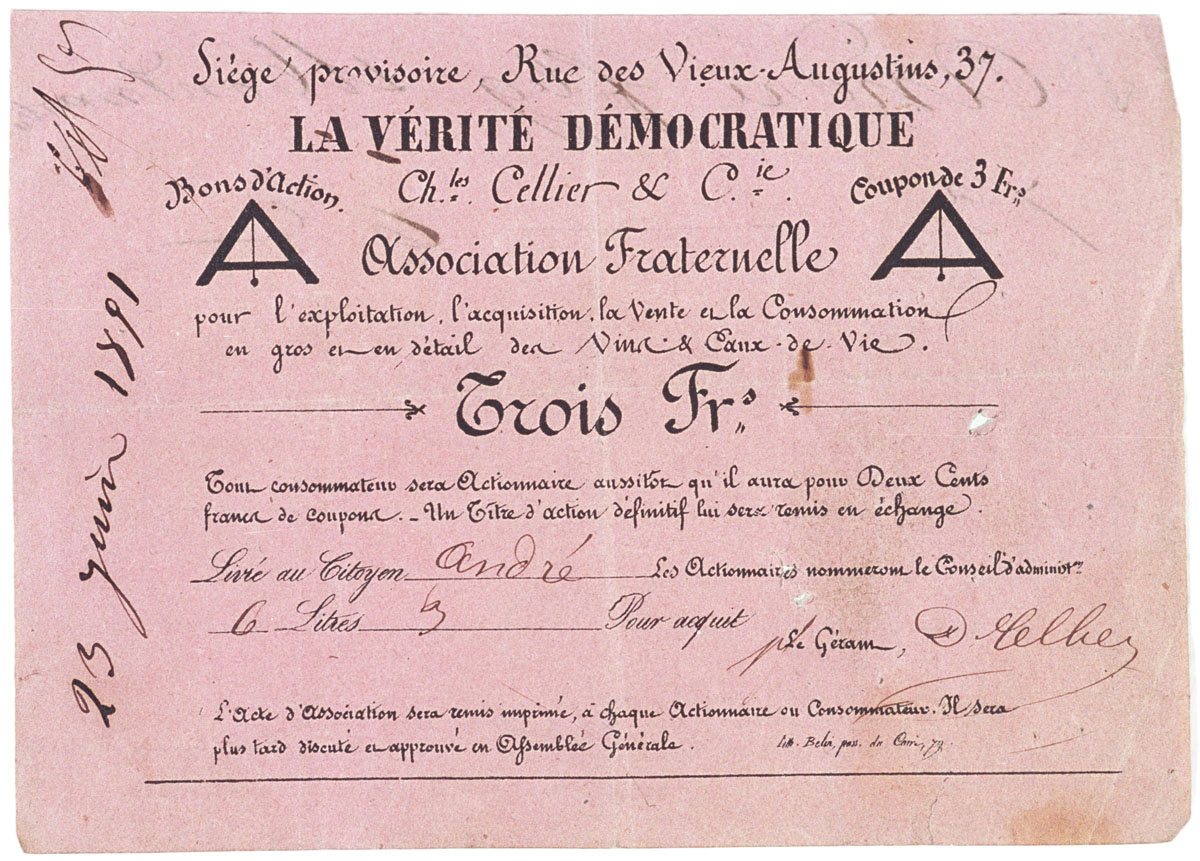 Siége provisoire, Rue des Vieux-Augustins, 37.
LA VÉRITÉ DÉMOCRATIQUE
Bons d'Action.
Ch.les Cellier & C.ie.
Coupon de 3 Frs
Association Fraternelle
pour l'exploitation, l'acquisition, la Vente et la Consommation
en gros et en détail des Vins & Eaux-de-Vie.
Trois Frs
Tout consommateur sera Actionnaire aussitôt qu'il aura pour Deux Cents
francs de coupons. - Un Titre d'action définitif lui sera remis en échange.
Livré au Citoyen André Les Actionnaires nommeront le Conseil d'administon
6 Litres 3 Pour acquit
pr Le Gérant,
L'Acte d'Association sera remis imprimé, à chaque Actionnaire ou Consommateur. Il sera
plus tard discuté et approuvé en Assemblée Générale.
lith. Belin, pass. du Caire, 79.
23 juin